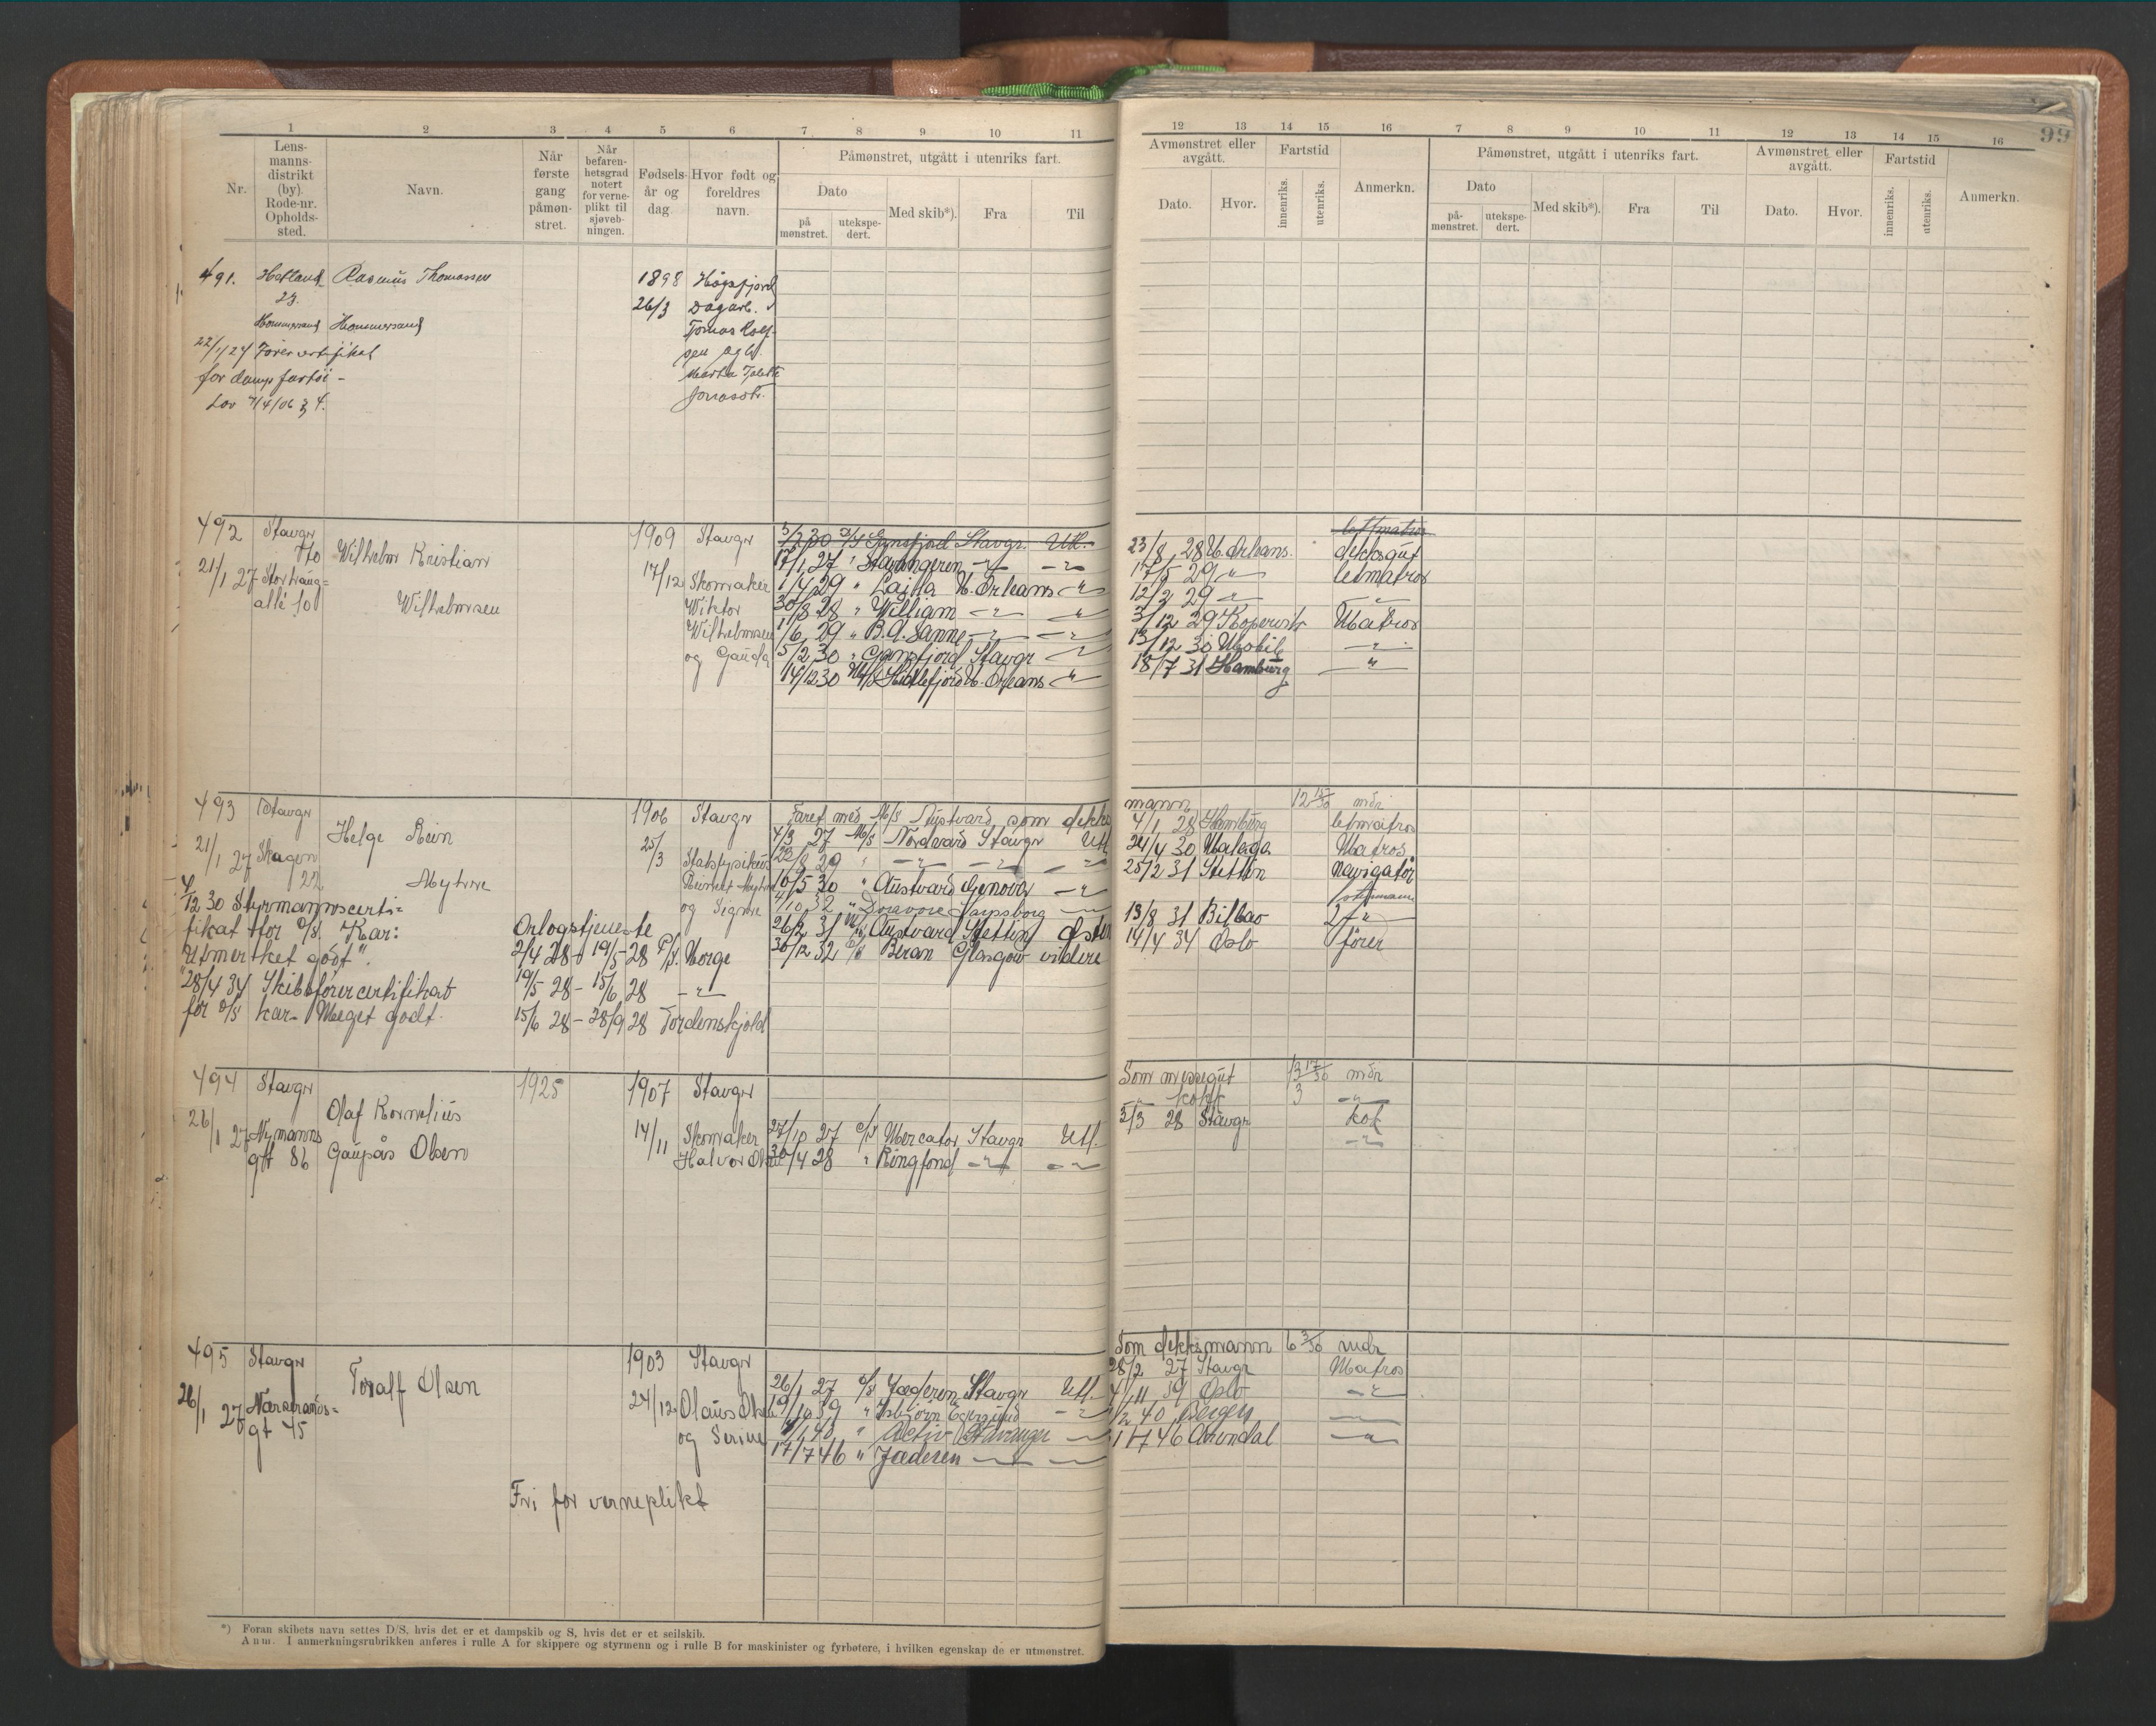 99
1 2 3 4 5 6 7 8 9 10 11
Nr.
Lens-
manns-
distrikt
(by).
Rode-nr.
Opholds-
sted.
Navn.
Når
første
gang
påmøn-
stret.
Når
befaren-
hetsgrad
notert
for verne-
plikt til
sjøveb-
ningen.
Fødsels-
år og
dag
Hvor født og
foreldres
navn.
Påmønstret, utgått i utenriks fart.
Dato
på
mønstret.
utekspe-
dert.
Med skib*).
Fra
Til
12 13 14 15 16 7 8 9 10 11 12 13 14 15 16
Avmønstret eller
avgått.
Dato.
Hvor.
Fartstid
innenriks.
utenriks.
Anmerkn.
Påmønstret, utgått i utenriks fart.
Dato
på-
mønstret.
utekspe-
dert.
Med skib*).
Fra
Til
Avmønstret eller
avgått.
Dato.
Hvor.
Fartstid
innenriks.
utenriks.
Anmerkn.
491. Hetland Rasmus Thomassen 1898 Høgsfjord
23. 26/3 Dagarb.
Hommersand Hommersand Tomas
22/1/27 Førercertifikat
for dampfartøi -
Lov 7/4/06 § 4.
492 Stavgr 1909 Stavgr 5/2 30 D/S Gansfjord Stavgr. Utl. letmatros
Wilhelm Kristian 17/1 27 " Stavangeren -"- -"- 23/8 28 N. Orleans. dekksgut
21/1 27 Storhaug= 17/12 Skomaker 1/4 29 " Lajlla N. Orleans -"- 17/5 29 -"- letmatros
allé 50 Wilhelmsen Wiktor 30/8 28 " William -"- " 12/2 29 -"- -"-
Wilhelmsen 1/6 29 " B.A. Sanne -"- -"- 3/12 29 Kopervik Matros
og Gauda 5/2 30 " Gansfjord Stavgr -"- 13/12 30 Mobile -"-
14/12 30 M/S Hidlefjord N. Orleans -"- 18/7 31 Hamburg -"-
493 Stavgr 1906 Stavgr Faret med M/S Nystvard som dekks mann 12 17/30 mdr
Helge Rein 4/3 27 M/S Nordvard Stavgr Utl 4/1 28 Hamburg letmatros
21/1 27 Skagen 25/3 Statsfysikus 22/8 29 " -"- -"- -"- 24/4 30 Malaga Matros
22 Myhre Reinert Myhre 10/5 30 " Austvard Genova -"- 25/2 31 Stettin navigatør
4/12 30 Styrmannscerti= og Signe 4/10 32 " Doravore Sarpsborg -"- styrmann
fikat for D/S. Kar: Orlogstjeneste 26/2 31 M/S Austvard Stettin Østen 13/8 31 Bilbao 2 -"-
"Utmerket godt". 2/4 28 - 19/5 - 28 P/S. Norge 30/12 32 D/S Beran Glasgow videre 14/4 34 Oslo fører
28/4 34 Skibsførercertifikat 19/5 28 - 15/6 28 -"-
for D/S kar. Meget godt. 15/6 28 - 28/9 28 Tordenskjold
494 Stavgr 1925 1907 Stavgr Som messegut 13 17/30 mdr
Olaf Kornelius -"- kokk 3 -"-
26/1 27 Nymanns 14/11 Skomaker 27/10 27 D/S Mercator Stavgr Utl. 3/3 28 Stavgr kok
gt 86 Gaupås Olsen Halvor Olsen 30/4 28 " Ringfond -"- -"- -"-
495 Stavgr 1903 Stavgr Som dekksmann 6 3/30 mdr
Toralf Olsen 26/1 27 D/S Jæderen Stavgr Utl. 28/2 27 Stavgr Matros
26/1 27 Normanns= 24/12 Olaus Olsen 19/10 39 " Isbjørn Egersund -"- 4/11 39 Oslo -"-
gt 45 og Serine 4/1 40 " Activ Stavanger -"- 1/2 40 Bergen -"-
17/7 46 " Jæderen -"- -"- 46 Arendal -"-
Fri for verneplikt
*) Foran skibets navn settes D/S, hvis det er et dampskib og S, hvis det er et seilskib.
Anm. I anmerkningsrubrikken anføres i rulle A for skippere og styrmenn og i rulle B for maskinister og fyrbøtere, i hvilken egenskap de er utmønstret.